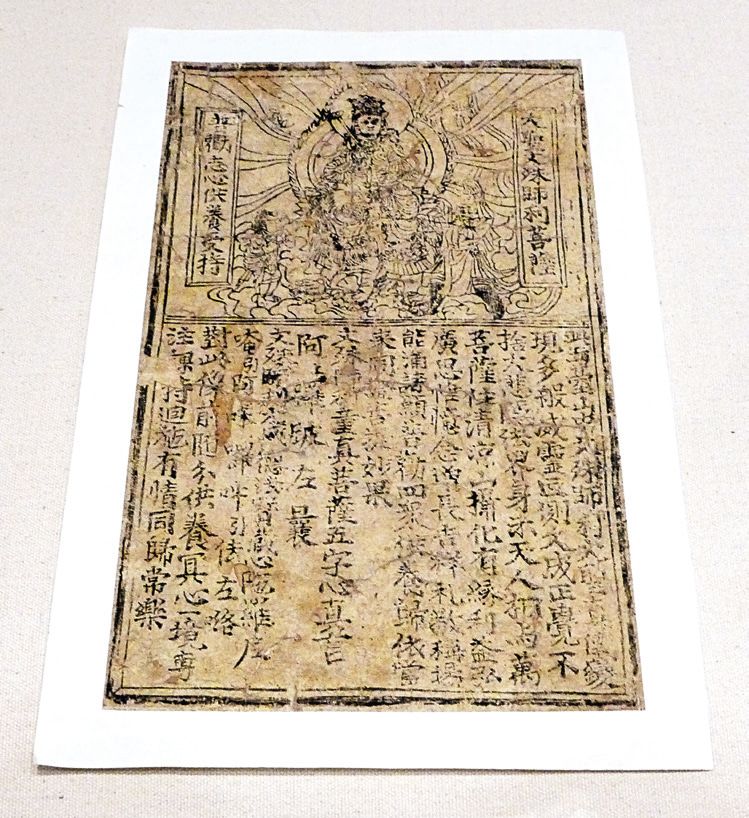 大聖文殊師利菩薩
普勸志心供養受持
此五臺山中文殊師利大聖真儀變
現多般威靈叵測久成正覺不
捨大悲隱法界身示天人相與萬
菩薩住清涼山攝化有緣利益弘
廣思惟憶念增長吉祥礼敬稱揚
能滿諸願普勸四眾供養歸依當
來同證菩提妙果
文殊師利童真菩薩五字心真言
阿上囉跛左曩
文殊師利大威德法寶藏心陀羅尼
唵引阿味囉吽引佉左略
對此像前隨分供養冥心一境專
注課持迴施有情同歸常樂